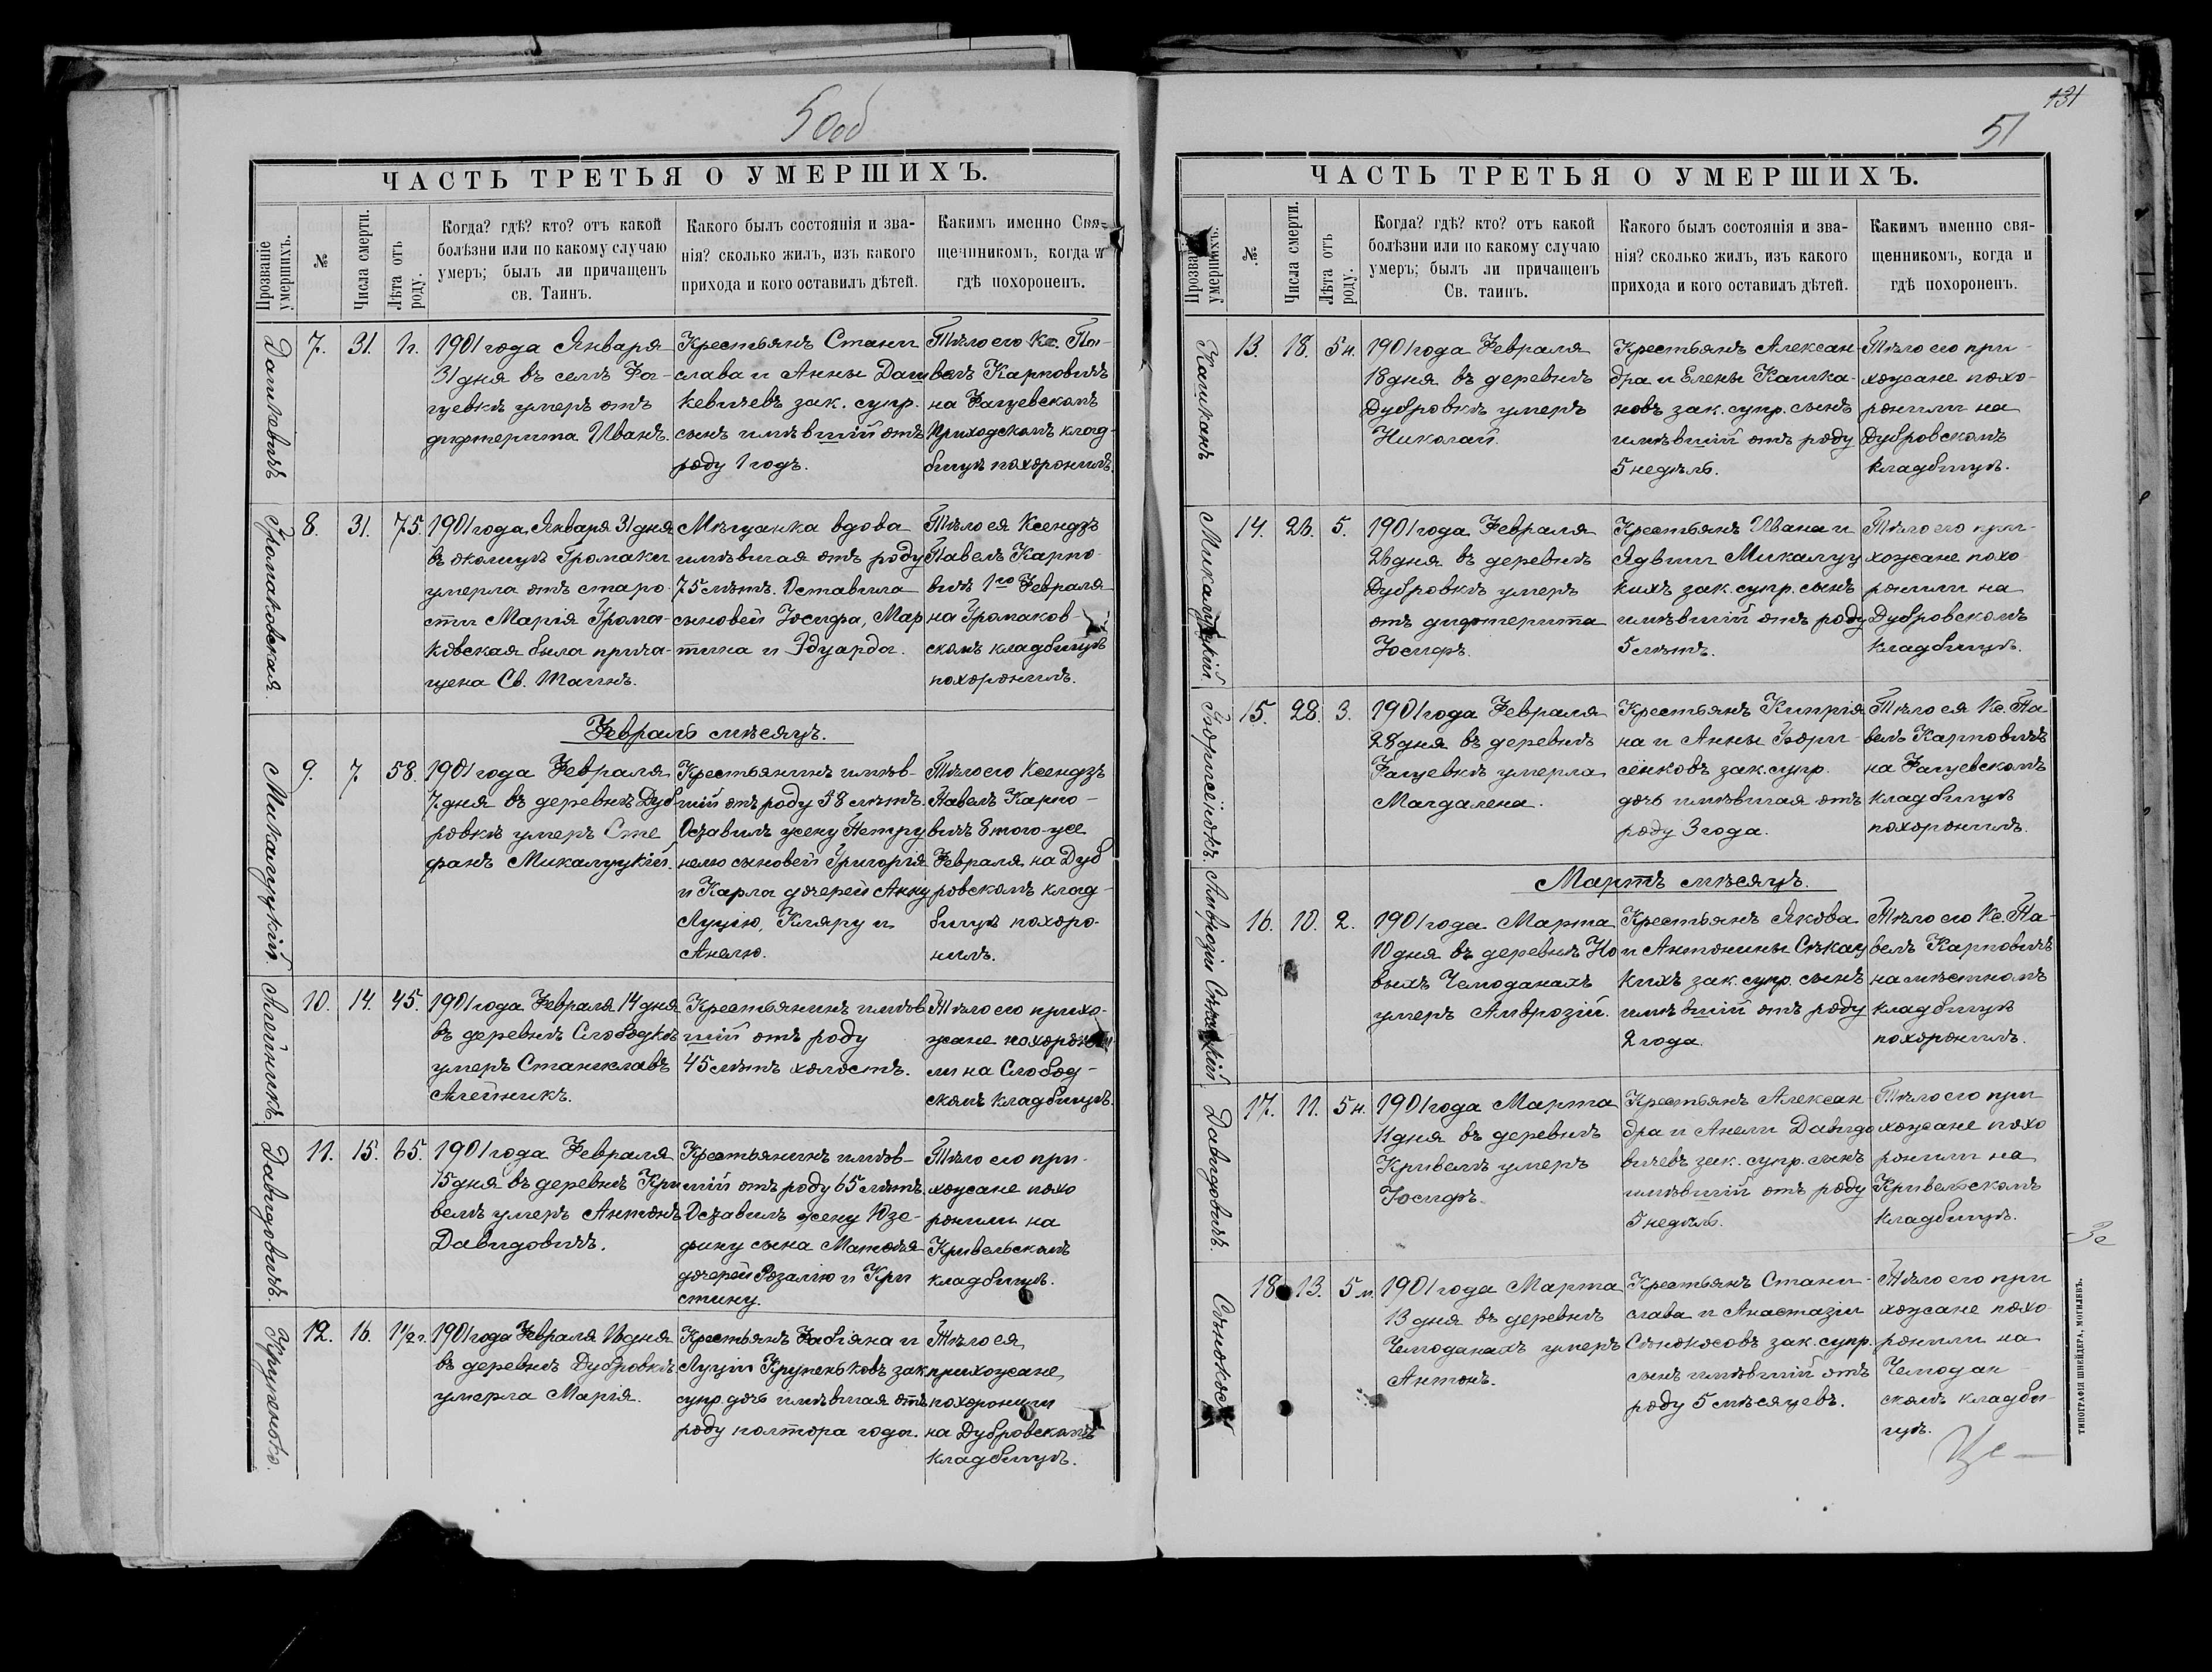 50об
ЧАСТЬ ТРЕТЬЯ О УМЕРШИХЪ.
Прозваніе умершихъ.
№
Числа смерти.
Лѣта отъ роду.
Когда? гдѣ? кто? отъ какой
болѣзни или по какому случаю
умеръ; былъ ли причащенъ
св. Таинъ.
Какого былъ состоянія и зва-
нія? сколько жилъ, изъ какого
прихода и кого оставилъ дѣтей.
Какимъ именно Свя-
щенникомъ, когда и
гдѣ похороненъ.
Дашкевичъ
7.
31.
1г.
1901 года Января
31 дня въ селѣ Фа-
щевкѣ умеръ отъ
дифтерита Иванъ.
Крестьянъ Стани
слава и Анны Даш
кевичевъ зак. супр.
сынъ имѣвшій отъ
роду 1 годъ.
Тѣло его Кс. Па-
велъ Карповичъ
на Фащевскомъ
Приходскомъ клад-
бищѣ похоронилъ.
Громаковская.
8.
31.
75.
1901 года Января 31 дня
въ околицѣ Громаки
умерла отъ старо-
сти Марія Грома-
ковская была прича-
щена Св. Таинъ.
Мѣщанка вдова
имѣвшая отъ роду
75 лѣтъ. Оставила
сыновей Іосифа, Мар
тина и Эдуарда.
Тѣло ея Ксендзъ
Павелъ Карпо-
вичъ 1го Февраля
на Громаков-
скомъ кладбищѣ
похоронилъ.
Февраль мѣсяцъ.
Микалуцкій.
9.
7
58.
1901 года Февраля
7 дня въ деревнѣ Дуб-
ровкѣ умеръ Сте
фанъ Микалуцкій.
Крестьянинъ имѣв-
шій отъ роду 58 лѣтъ.
Оставилъ жену Петру
нелю сыновей Григорія
и Карла дочерей Анну
Луцію, Кляру и
Анелю.
Тѣло его Ксендзъ
Павелъ Карпо-
вичъ 8 того-же
Февраля на Дуб
ровскомъ клад-
бищѣ похоро-
нилъ.
Алейникъ.
10.
14.
45.
1901 года Февраля 14 дня
въ деревнѣ Слободкѣ
умеръ Станиславъ
Алейникъ.
Крестьянинъ имѣв
шій отъ роду
45 лѣтъ холостъ.
Тѣло его прихо-
жане похорони
ли на Слобод-
скомъ кладбищѣ.
Давидовичъ.
11.
15.
65.
1901 года Февраля
15 дня въ деревнѣ Кри
велѣ умеръ Антонъ
Давидовичъ.
Крестьянинъ имѣв-
шій отъ роду 65 лѣтъ.
Оставилъ жену Юзе-
фину сына Матвѣя
дочерей Розалію и Кри
стину.
Тѣло его при-
хожане похо
ронили на
Кривельскомъ
кладбищѣ.
Крупенько.
12.
16.
1 1/2 г.
1901 года Февраля 16 дня
въ деревнѣ Дубровкѣ
умерла Марія.
Крестьянъ Фабіяна и
Луціи Крупеньковъ зак
супр. дочь имѣвшая отъ
роду полтора года.
Тѣло ея
прихожане
похоронили
на Дубровскомъ
кладбищѣ.
131
51
ЧАСТЬ ТРЕТЬЯ О УМЕРШИХЪ.
Прозваніе умершихъ.
№.
Числа смерти.
Лѣта отъ роду.
Когда? гдѣ? кто? отъ какой
болѣзни или по какому случаю
умеръ; былъ ли причащенъ
Св. таинъ.
Какого былъ состоянія и зва-
нія? сколько жилъ, изъ какого
прихода и кого оставилъ дѣтей.
Какимъ именно свя-
щенникомъ, когда и
гдѣ похороненъ.
Кашканъ
13.
18.
5 н.
1901 года Февраля
18 дня въ деревнѣ
Дубровкѣ умеръ
Николай.
Крестьянъ Алексан-
дра и Елены Кашка-
новъ зак. супр. сынъ
имѣвшій отъ роду
5 недѣль.
Тѣло его при-
хожане похо-
ронили на
Дубровскомъ
кладбищѣ.
Микалуцкій
14.
26.
5.
1901 года Февраля
26 дня въ деревнѣ
Дубровкѣ умеръ
отъ дифтерита
Іосифъ.
Крестьянъ Ивана и
Ядвиги Микалуц
кихъ зак. супр. сынъ
имѣвшій отъ роду
5 лѣтъ.
Тѣло его при-
хожане похо
ронили на
Дубровскомъ
кладбищѣ.
15.
28.
3.
1901 года Февраля
28 дня въ деревнѣ
Фащевкѣ умерла
Магдалена.
Крестьянъ Кипрія
на и Анны
сенковъ зак. супр.
дочь имѣвшая отъ
роду 3 года.
Тѣло ея Кс. Па
велъ Карповичъ
на Фащевскомъ
кладбищѣ
похоронилъ.
Мартъ мѣсяцъ.
Амврозіи Сѣкацкій
16.
10.
2.
1901 года Марта
10 дня въ деревнѣ Но
выхъ Чемоданахъ
умеръ Амврозій.
Крестьянъ Якова
и Антонины Сѣкац
кихъ зак. супр. сынъ
имѣвшій отъ роду
2 года.
Тѣло его Кс. Па-
велъ Карповичъ
на мѣстномъ
кладбищѣ
похоронилъ.
Давидовичъ.
17.
11.
5 н.
1901 года Марта
11 дня въ деревнѣ
Кривелѣ умеръ
Іосифъ.
Крестьянъ Алексан
дра и Анели Давидо
вичевъ зак. супр. сынъ
имѣвшій отъ роду
5 недѣль.
Тѣло его при
хожане похо
ронили на
Кривельскомъ
кладбищѣ.
Сѣнокосъ
18
13.
5 м.
1901 года Марта
13 дня въ деревнѣ
Чемоданахъ умеръ
Антонъ.
Крестьянъ Стани-
слава и Анастазіи
Сѣнокосовъ зак. супр.
сынъ имѣвшій отъ
роду 5 мѣсяцевъ.
Тѣло его при
хожане похо-
ронили на
Чемодан-
скомъ кладби-
щѣ.
ТИПОГРАФІЯ ШНЕЙДЕРА, МОГИЛЕВЪ.